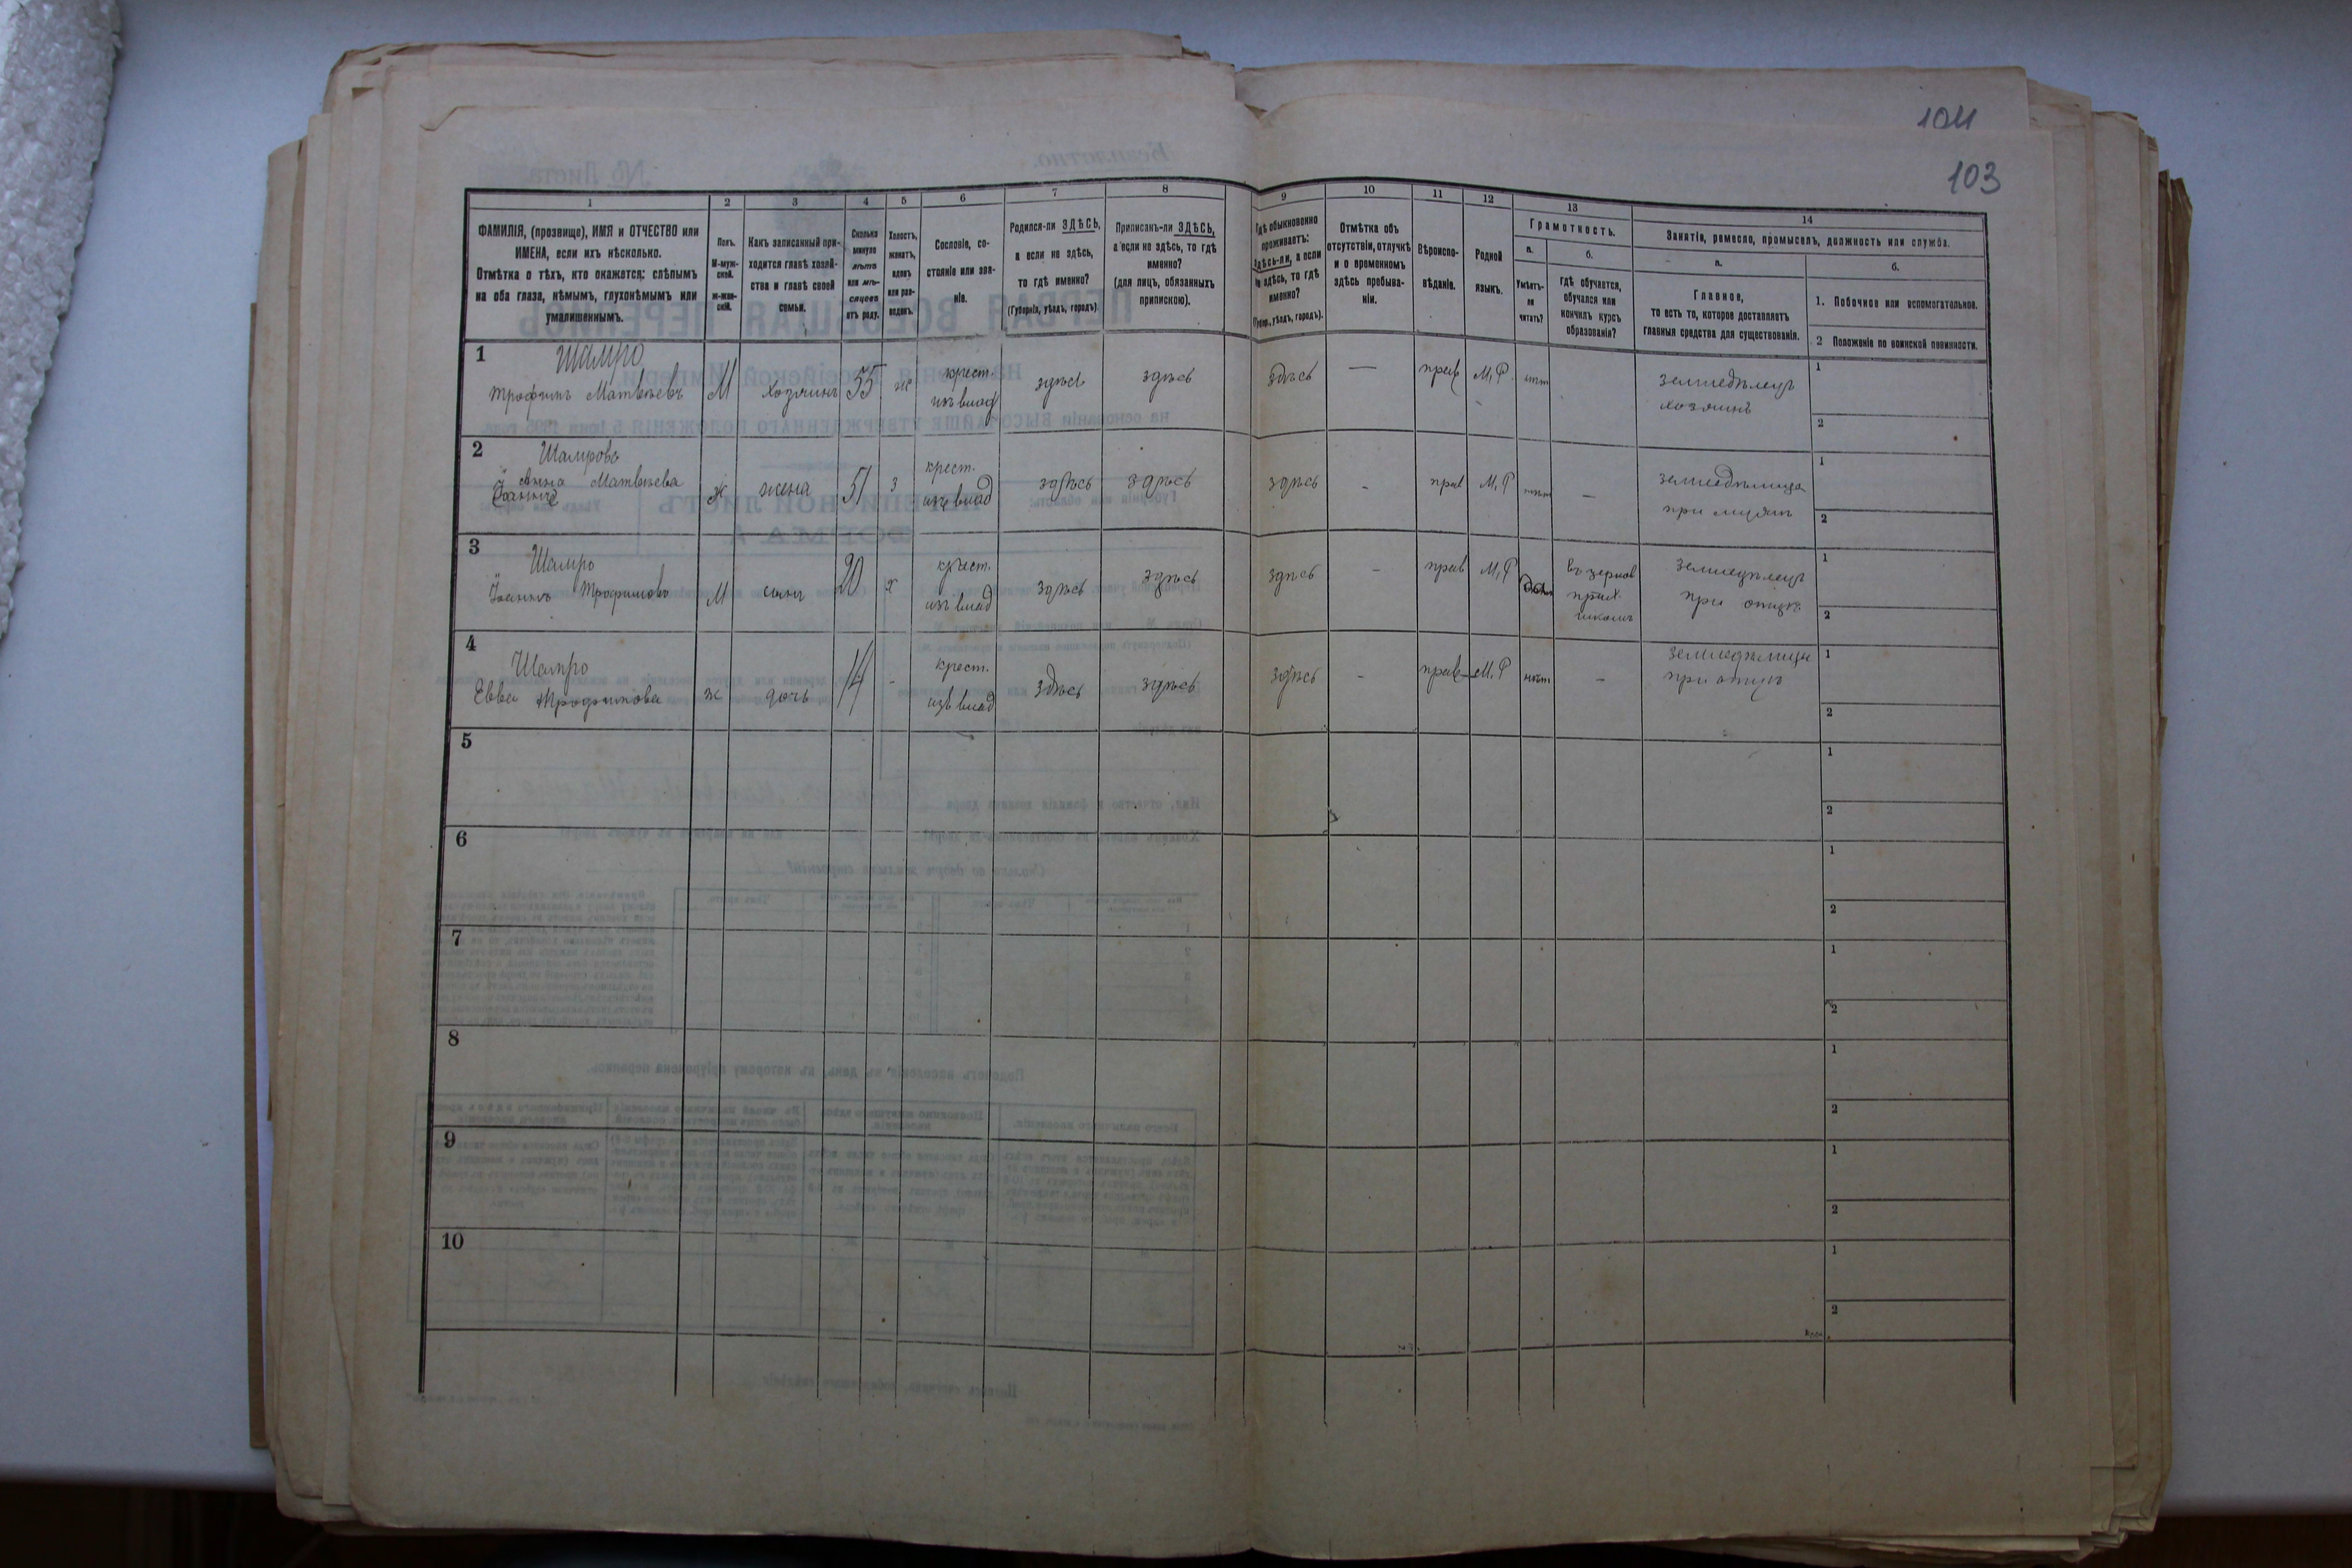 104
103
1 2 3 4 5 6 7 8 9 10 11 12 13 14
ФАМИЛІЯ, (прозвище), ИМЯ и ОТЧЕСТВО или
ИМЕНА, если ихъ нѣсколько.
Отмѣтка о тѣхъ, кто окажется: слѣпымъ
на оба глаза, нѣмымъ, глухонѣмымъ или
умалишеннымъ.
Полъ.
М-муж-
ской.
ж-жен-
скій.
Какъ записанный при-
ходится главѣ хозяй-
ства и главѣ своей
семьи.
Сколько
минуло
лѣтъ
или мѣ-
сяцевъ
отъ роду.
Холостъ,
женатъ,
вдовъ
или раз-
веденъ.
Сословіе, со-
стояніе или зва-
ніе.
Родился-ли ЗДѢСЬ,
а если не здѣсь,
то гдѣ именно?
(Губернія, уѣздъ, городъ)
Приписанъ-ли ЗДѢСЬ,
а если не здѣсь, то гдѣ
именно?
(для лицъ, обязанныхъ
припискою).
Гдѣ обыкновенно
проживаетъ:
Здѣсь-ли, а если
не здѣсь, то гдѣ
именно?
(Губер., уѣздъ, городъ).
Отмѣтка объ
отсутствіи, отлучкѣ
и о временномъ
здѣсь пребыва-
ніи.
Вѣроиспо-
вѣданіе.
Родной
языкъ.
Грамотность.
а.
Умѣетъ-
ли
читать?
б.
гдѣ обучается,
обучался или
кончилъ курсъ
образованія?
Занятіе, ремесло, промыселъ, должность или служба.
а.
Главное,
то есть то, которое доставляетъ
главныя средства для существованія.
б.
1. Побочное или вспомогательное.
2 Положеніе по воинской повинности.
1 Шампро
Трофимъ Матвѣевъ М Хозяинъ 55 ж крест. изъ влад здѣсь здѣсь здѣсь — прав М.Р. нѣт земледѣлецъ
хозяинъ
1
2
2 Шампрова
Анна Матвѣева ж жена 51 з крест. изъ влад здѣсь здѣсь здѣсь - прав М.Р нѣт — земледѣлица
при мужѣ
1
2
3 Шампро
Іоаннъ Трофимовъ М сынъ 20 х крест. изъ влад здѣсь здѣсь здѣсь - прав М.Р да въ церков
приход.
школѣ
земледѣлецъ
при отцѣ
1
2
4 Шампро
Евва Трофимова ж дочь 14 - крест. изъ влад здѣсь здѣсь здѣсь - прав М.Р нѣт — земледѣлица
при отцѣ
1
2
5
1
2
6
1
2
7
1
2
8
1
2
9
1
2
10
1
2